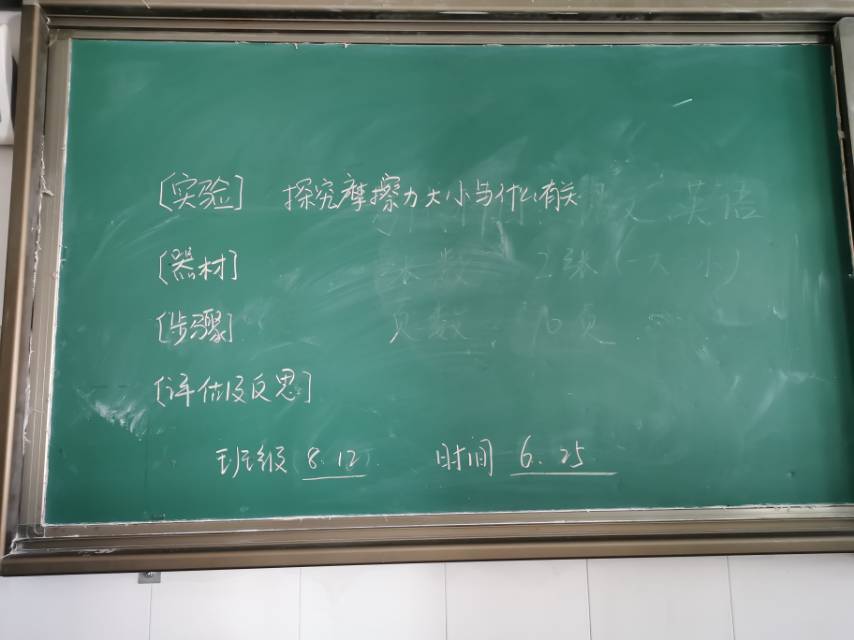 [实验] 探究摩擦力大小与什么有关
[器材]
[步骤]
[评估及反思]
班级 8.12 时间 6.25